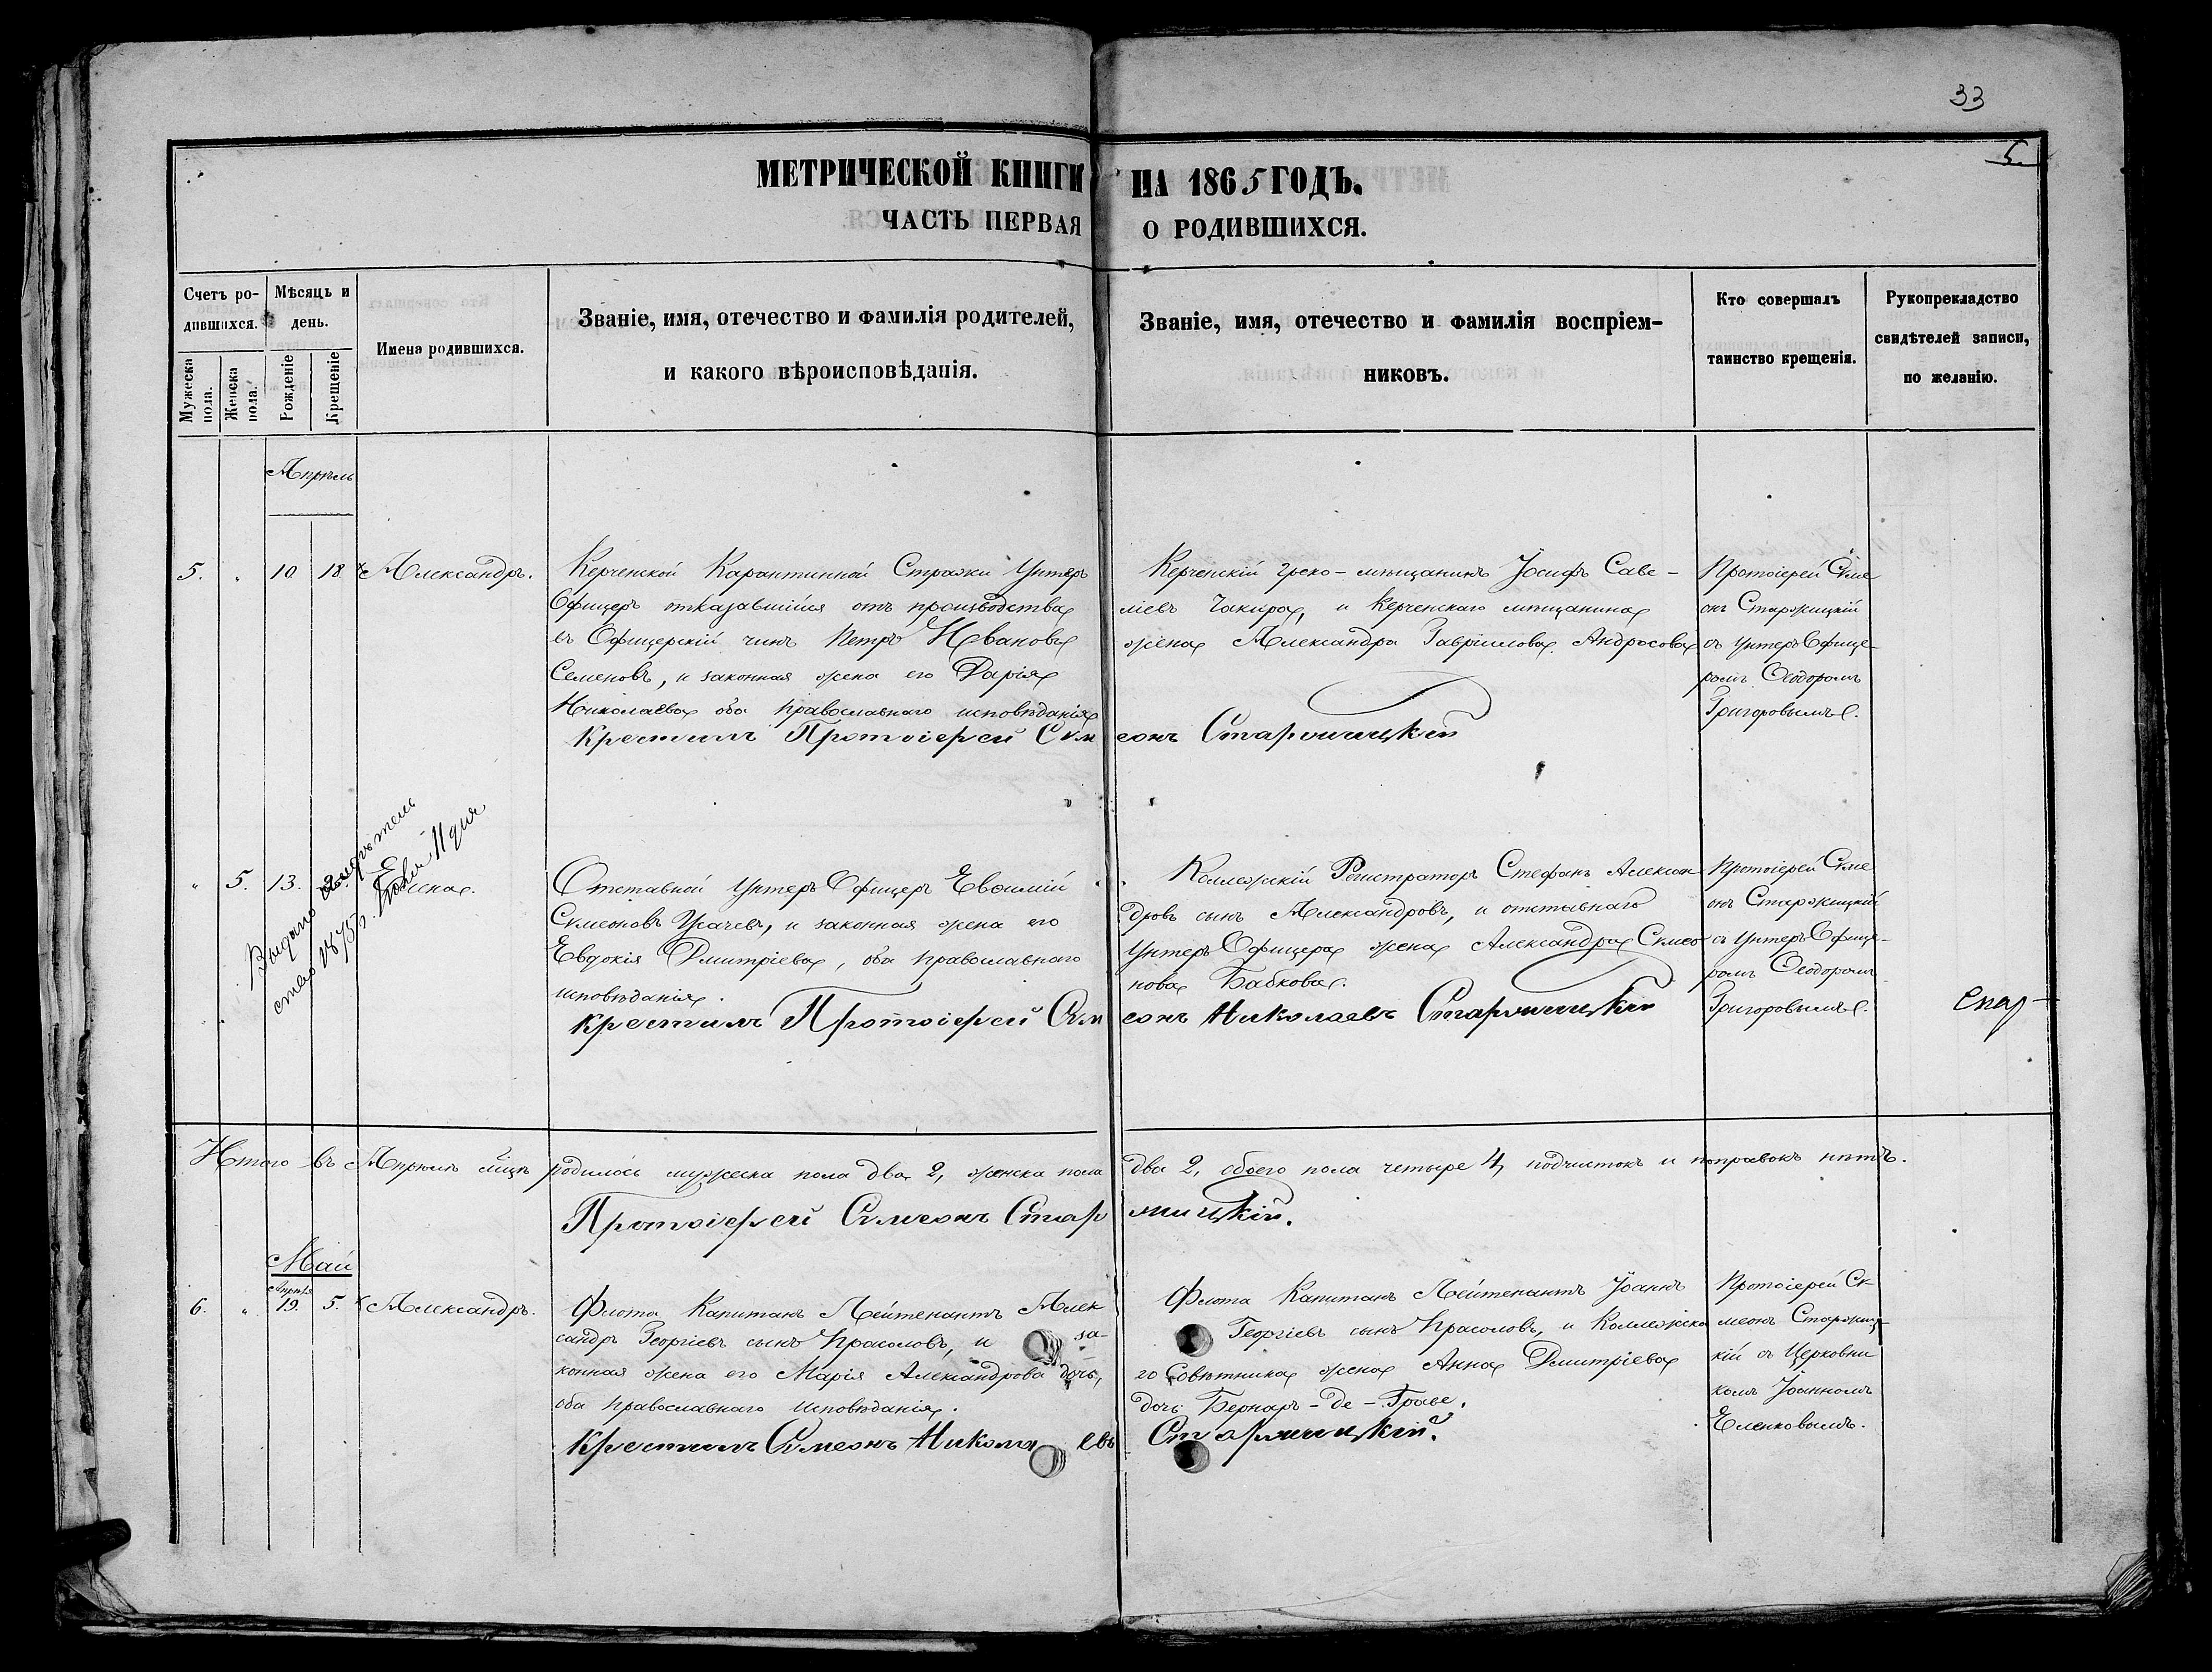 33
5.
МЕТРИЧЕСКОЙ КНИГИ НА 1865 ГОДЪ.
ЧАСТЬ ПЕРВАЯ О РОДИВШИХСЯ.
Счетъ родившихся.
Мужеска пола.
Женска пола.
Мѣсяцъ и день.
Рожденіе
Крещеніе
Имена родившихся.
Званіе, имя, отечество и фамилія родителей,
и какого вѣроисповѣданія.
Званіе, имя, отечество и фамилія воспріем-
никовъ.
Кто совершалъ
таинство крещенія.
Рукоприкладство
свидѣтелей записи,
по желанію.
Апрѣль
5. " 10. 18. Александръ.
Керченской Карантинной Стражи Унтеръ
Офицеръ отказавшійся отъ производства
въ Офицерскій чинъ Петръ Ивановъ
Семеновъ, и законная жена его Дарія
Николаева оба православнаго исповѣданія
Крестилъ Протоіерей Симеонъ Старжицкій
Керченскій греко-мѣщанинъ Іосифъ Саве-
ліевъ Чакира, и Керченскаго мѣщанина
жена Александра Гавріилова Андросова
Протоіерей Симе
онъ Старжицкій
съ Унтеръ Офице-
ромъ Ѳеодоромъ
Григоровымъ.
" 5. 13. Елена.
Выдано
1875 г. Юля 11 дня
Отставной Унтеръ Офицеръ Евѳимій
Симеоновъ Усачевъ, и законная жена его
Евдокія Дмитріева, оба православнаго
исповѣданія.
Крестилъ Протоіерей Симеонъ Николаевъ Старжицкій
Коллежскій Регистраторъ Стефанъ Алексан
дровъ сынъ Александровъ, и отставнаго
Унтеръ Офицера жена Александра Симео
нова Бабкова.
Протоіерей Симе
онъ Старжицкій
съ Унтеръ Офице-
ромъ Ѳеодоромъ
Григоровымъ.
Итого въ Апрѣлѣ мцѣ родилось мужеска пола два 2, женска пола два 2, обоего пола четыре 4, подчистокъ и поправокъ нѣтъ.
Протоіерей Симеонъ Старжицкій.
Май
Апрѣля
6. " 19. 5. Александръ.
Флота Капитанъ Лейтенантъ Алек
сандръ Георгіевъ сынъ Красоловъ, и за-
конная жена его Марія Александрова дочь,
оба православнаго исповѣданія.
Крестилъ Симеонъ Николаевъ Старжицкій.
Флота Капитанъ Лейтенантъ Іоаннъ
Георгіевъ сынъ Красоловъ, и Коллежска
го Совѣтника жена Анна Дмитріева
дочь Бернаръ-де-Граве.
Протоіерей Си-
меонъ Старжиц-
кій съ Церковни
комъ Іоанномъ
Еленковымъ.